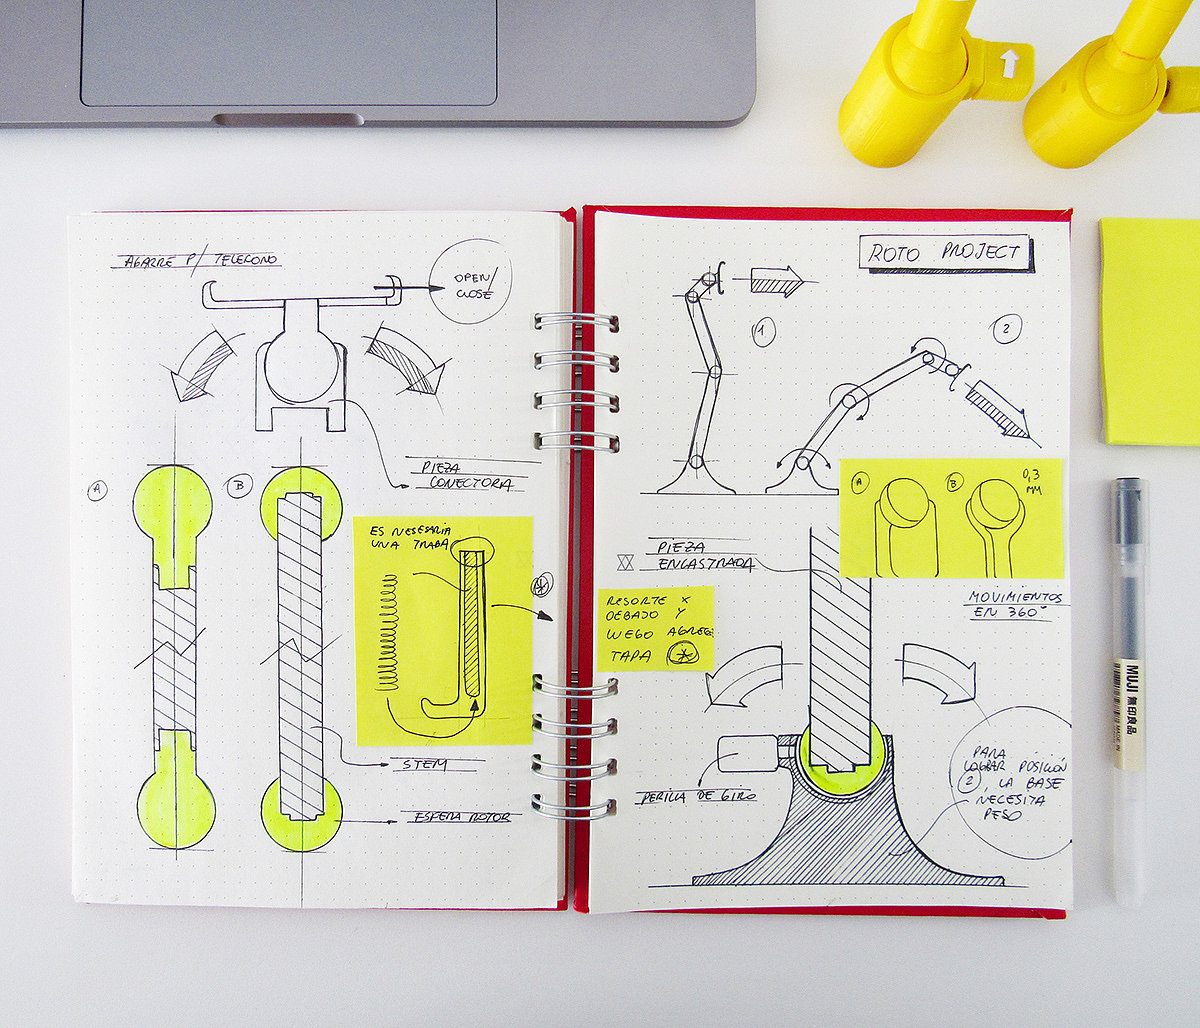 AGARRE P/ TELEFONO
OPEN/
CLOSE
PIEZA
CONECTORA
A
B
ES NESESARIA
UNA TRABA
STEM
ESFERA ROTOR
ROTO PROJECT
1
2
A
B
0,3
MM
PIEZA
ENCASTRADA
MOVIMIENTOS
EN 360°
RESORTE X
DEBAJO Y
LUEGO AGREG
TAPA
PERILLA DE GIRO
PARA
LOGRAR POSICIÓN
2, LA BASE
NECESITA
PESO
MUJI 無印良品